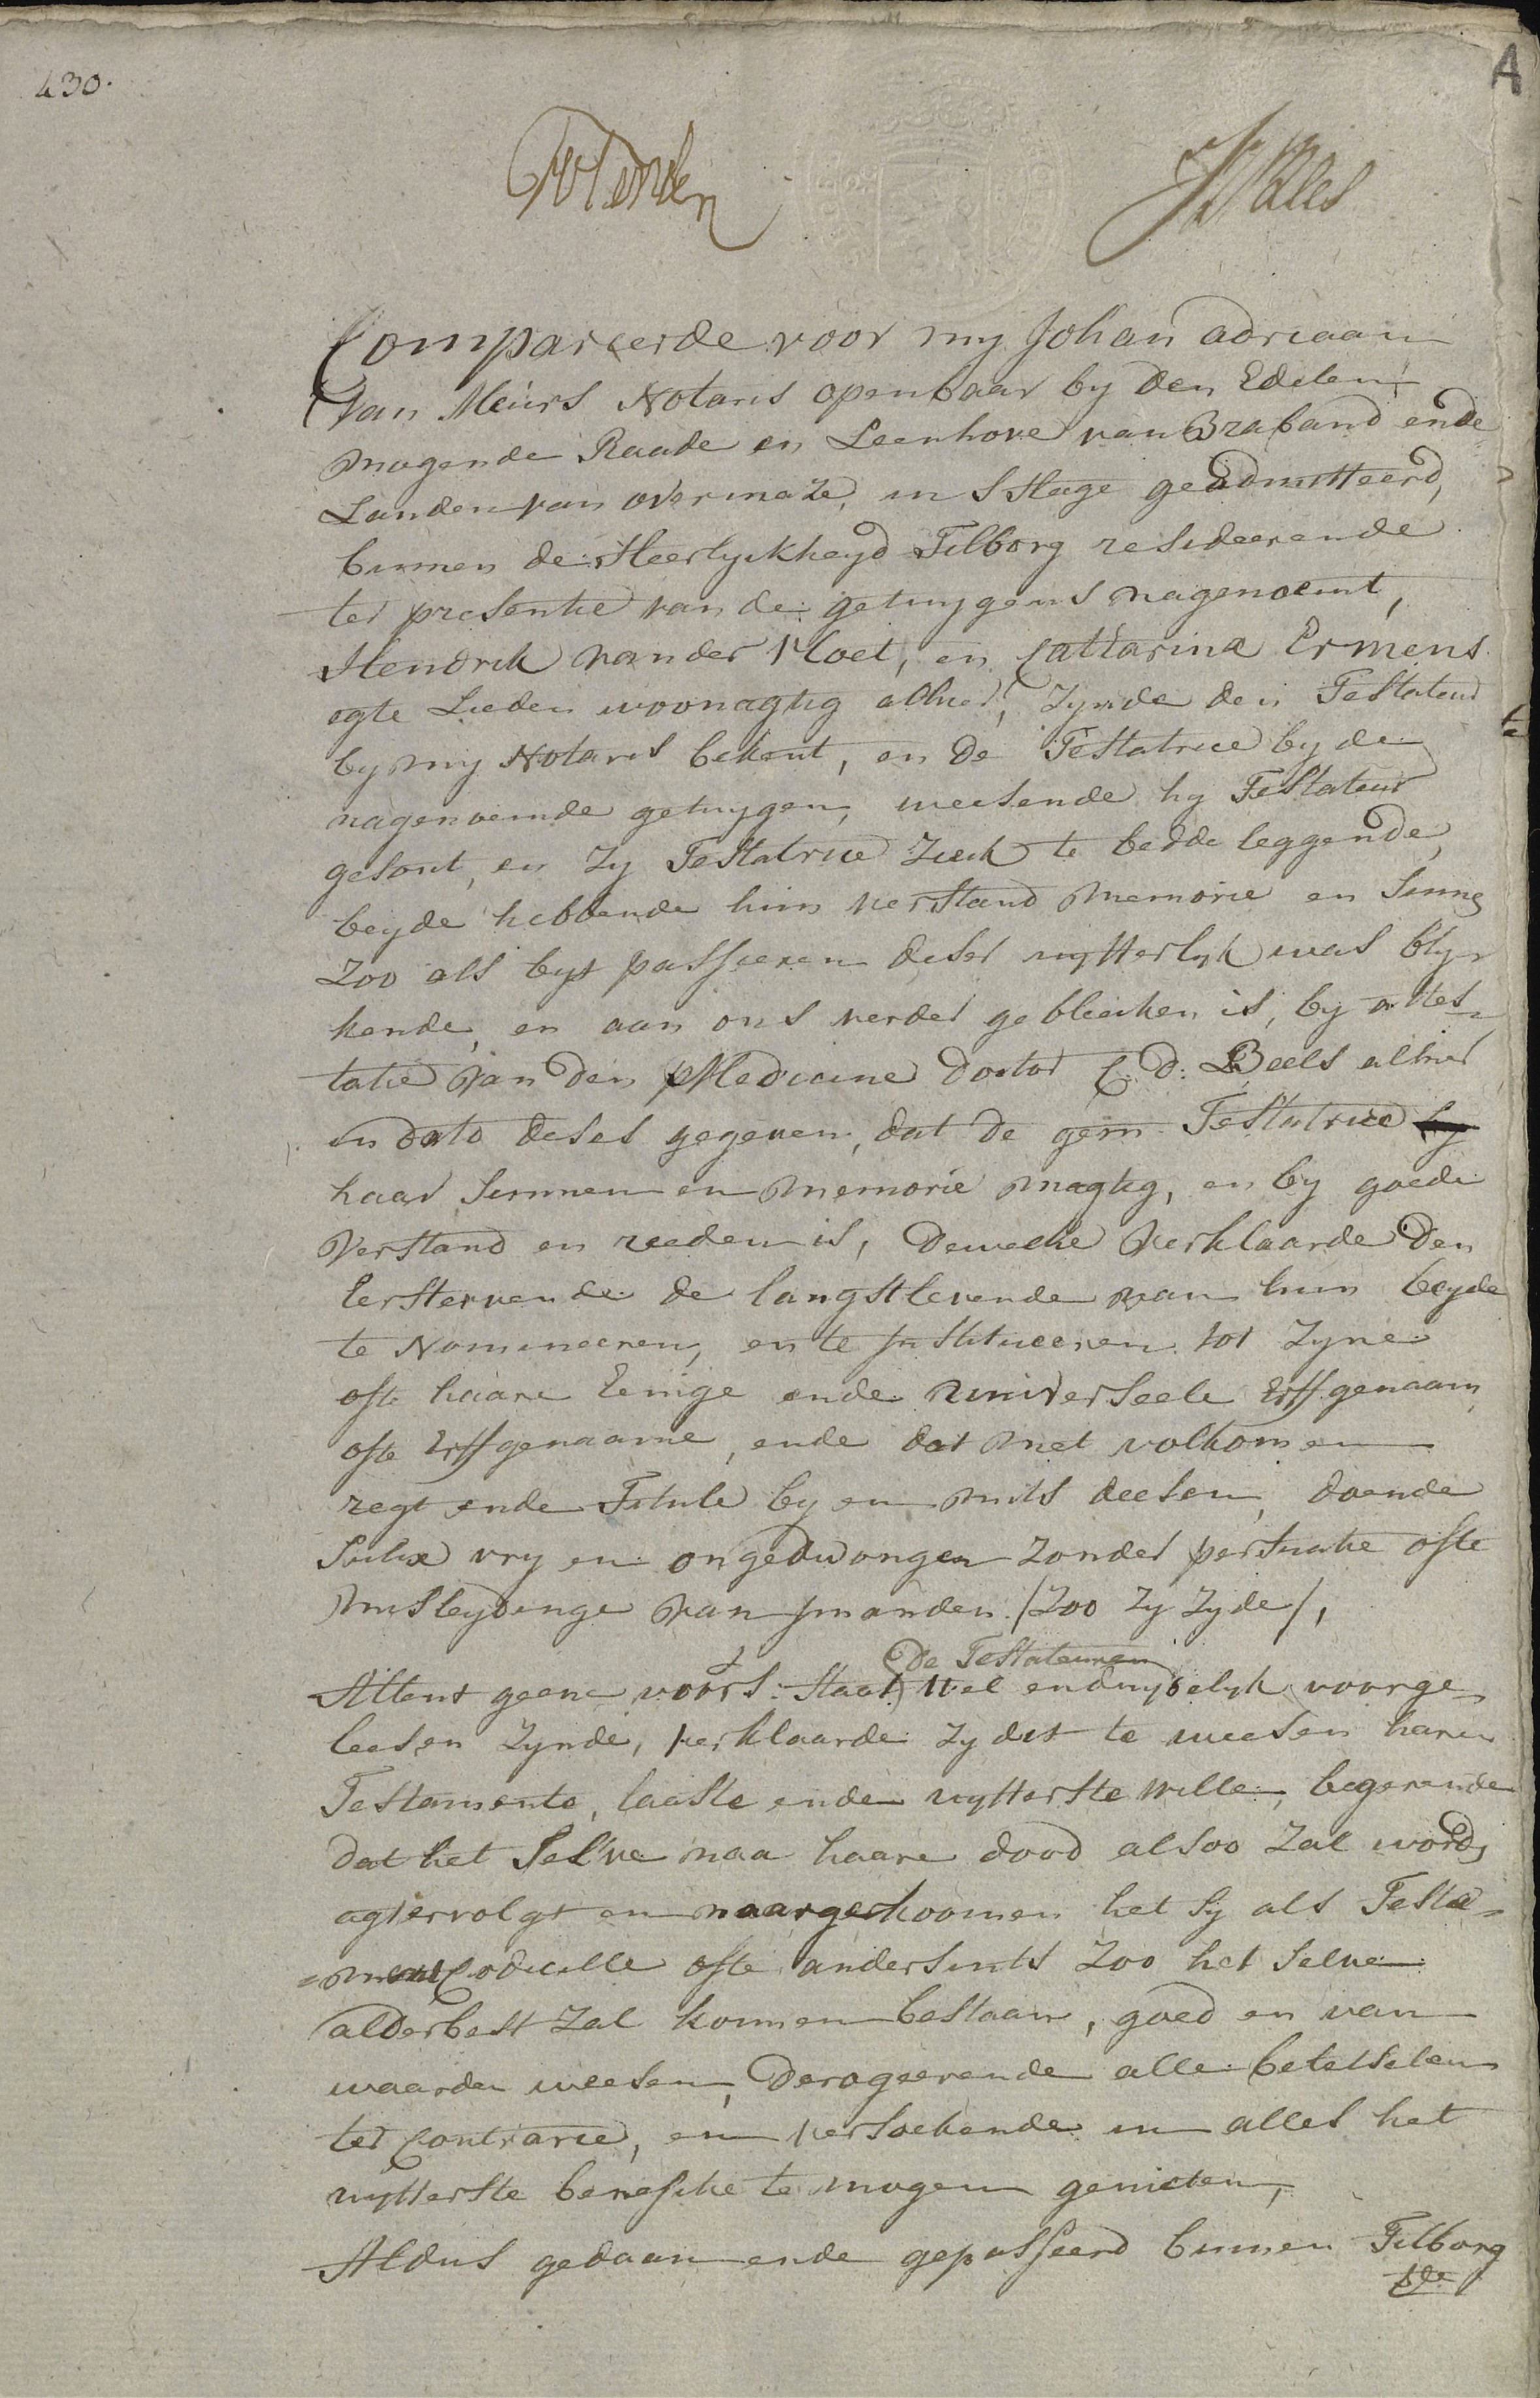 430.
A
Compareerde voor my Johan adriaan
van Meurs Notaris openbaar by den Edelen
mogende Raade en Leenhove van Braband ende
Landen van overmaze, in S Hage geadmitteerd,
binnen de Heerlyckheyd Tilborg resideerende
ter presentie van de getuygens nagenoemt,
Hendrik vander Kloet, en Cattarina Ermens
egte Lieden woonagtig alhier, Zynde den Testateur
by my Notaris bekent, en de Testatrice by de
nagenoemde getuygen, weesende hy Testateur
gesont, en Zy Testatrice Zieck te bedde leggende,
beyde hebbende hun verstand memorie en Sinne
Zoo als byt passeeren deser uytterlyk was bly-
kende, en aan ons verder gebleeken is, by attes-
tatie van den Medicine doctor C: D: Beels alhier
in dato deses gegeven, dat de gem Testatrice
haar Sinnen en memorie magtig, en by goede
verstand en reeden is, Dewelke verklaarde Den
Eerstervende de langstlevende van hun beyde
te Nomineeren, en te Institueeren tot Zyne
ofte haare Eenige ende universeele Erffgenaam
ofte Erffgenaame, ende dat met volkomen
regt ende Titule by en mits deesen, doende
Sulx vry en ongedwongen Zonder persuatie ofte
misleydinge van Imanden /Zoo Zy Zyde/,
de Testateuren
Altent geene voors: Staat wel enduydelyk voorge-
leesen Zynde, verklaarde Zy dit te weesen haren
Testamente, laaste ende uytterste wille, begerende
dat het Selve naa haare dood alsoo Zal word
agtervolgt en naargekoomen het Sy als Testa=
=ment Codicille ofte andersints Zoo het Selve
alderbest Zal konnen bestaan, goed en van
waarden weesen, Derogeerende alle beletselen
ter Contrarie, en versoekende in alles het
uytterste benefitie te mogen genieten,
Aldus gedaan ende gepasseerd binnen Tilborg